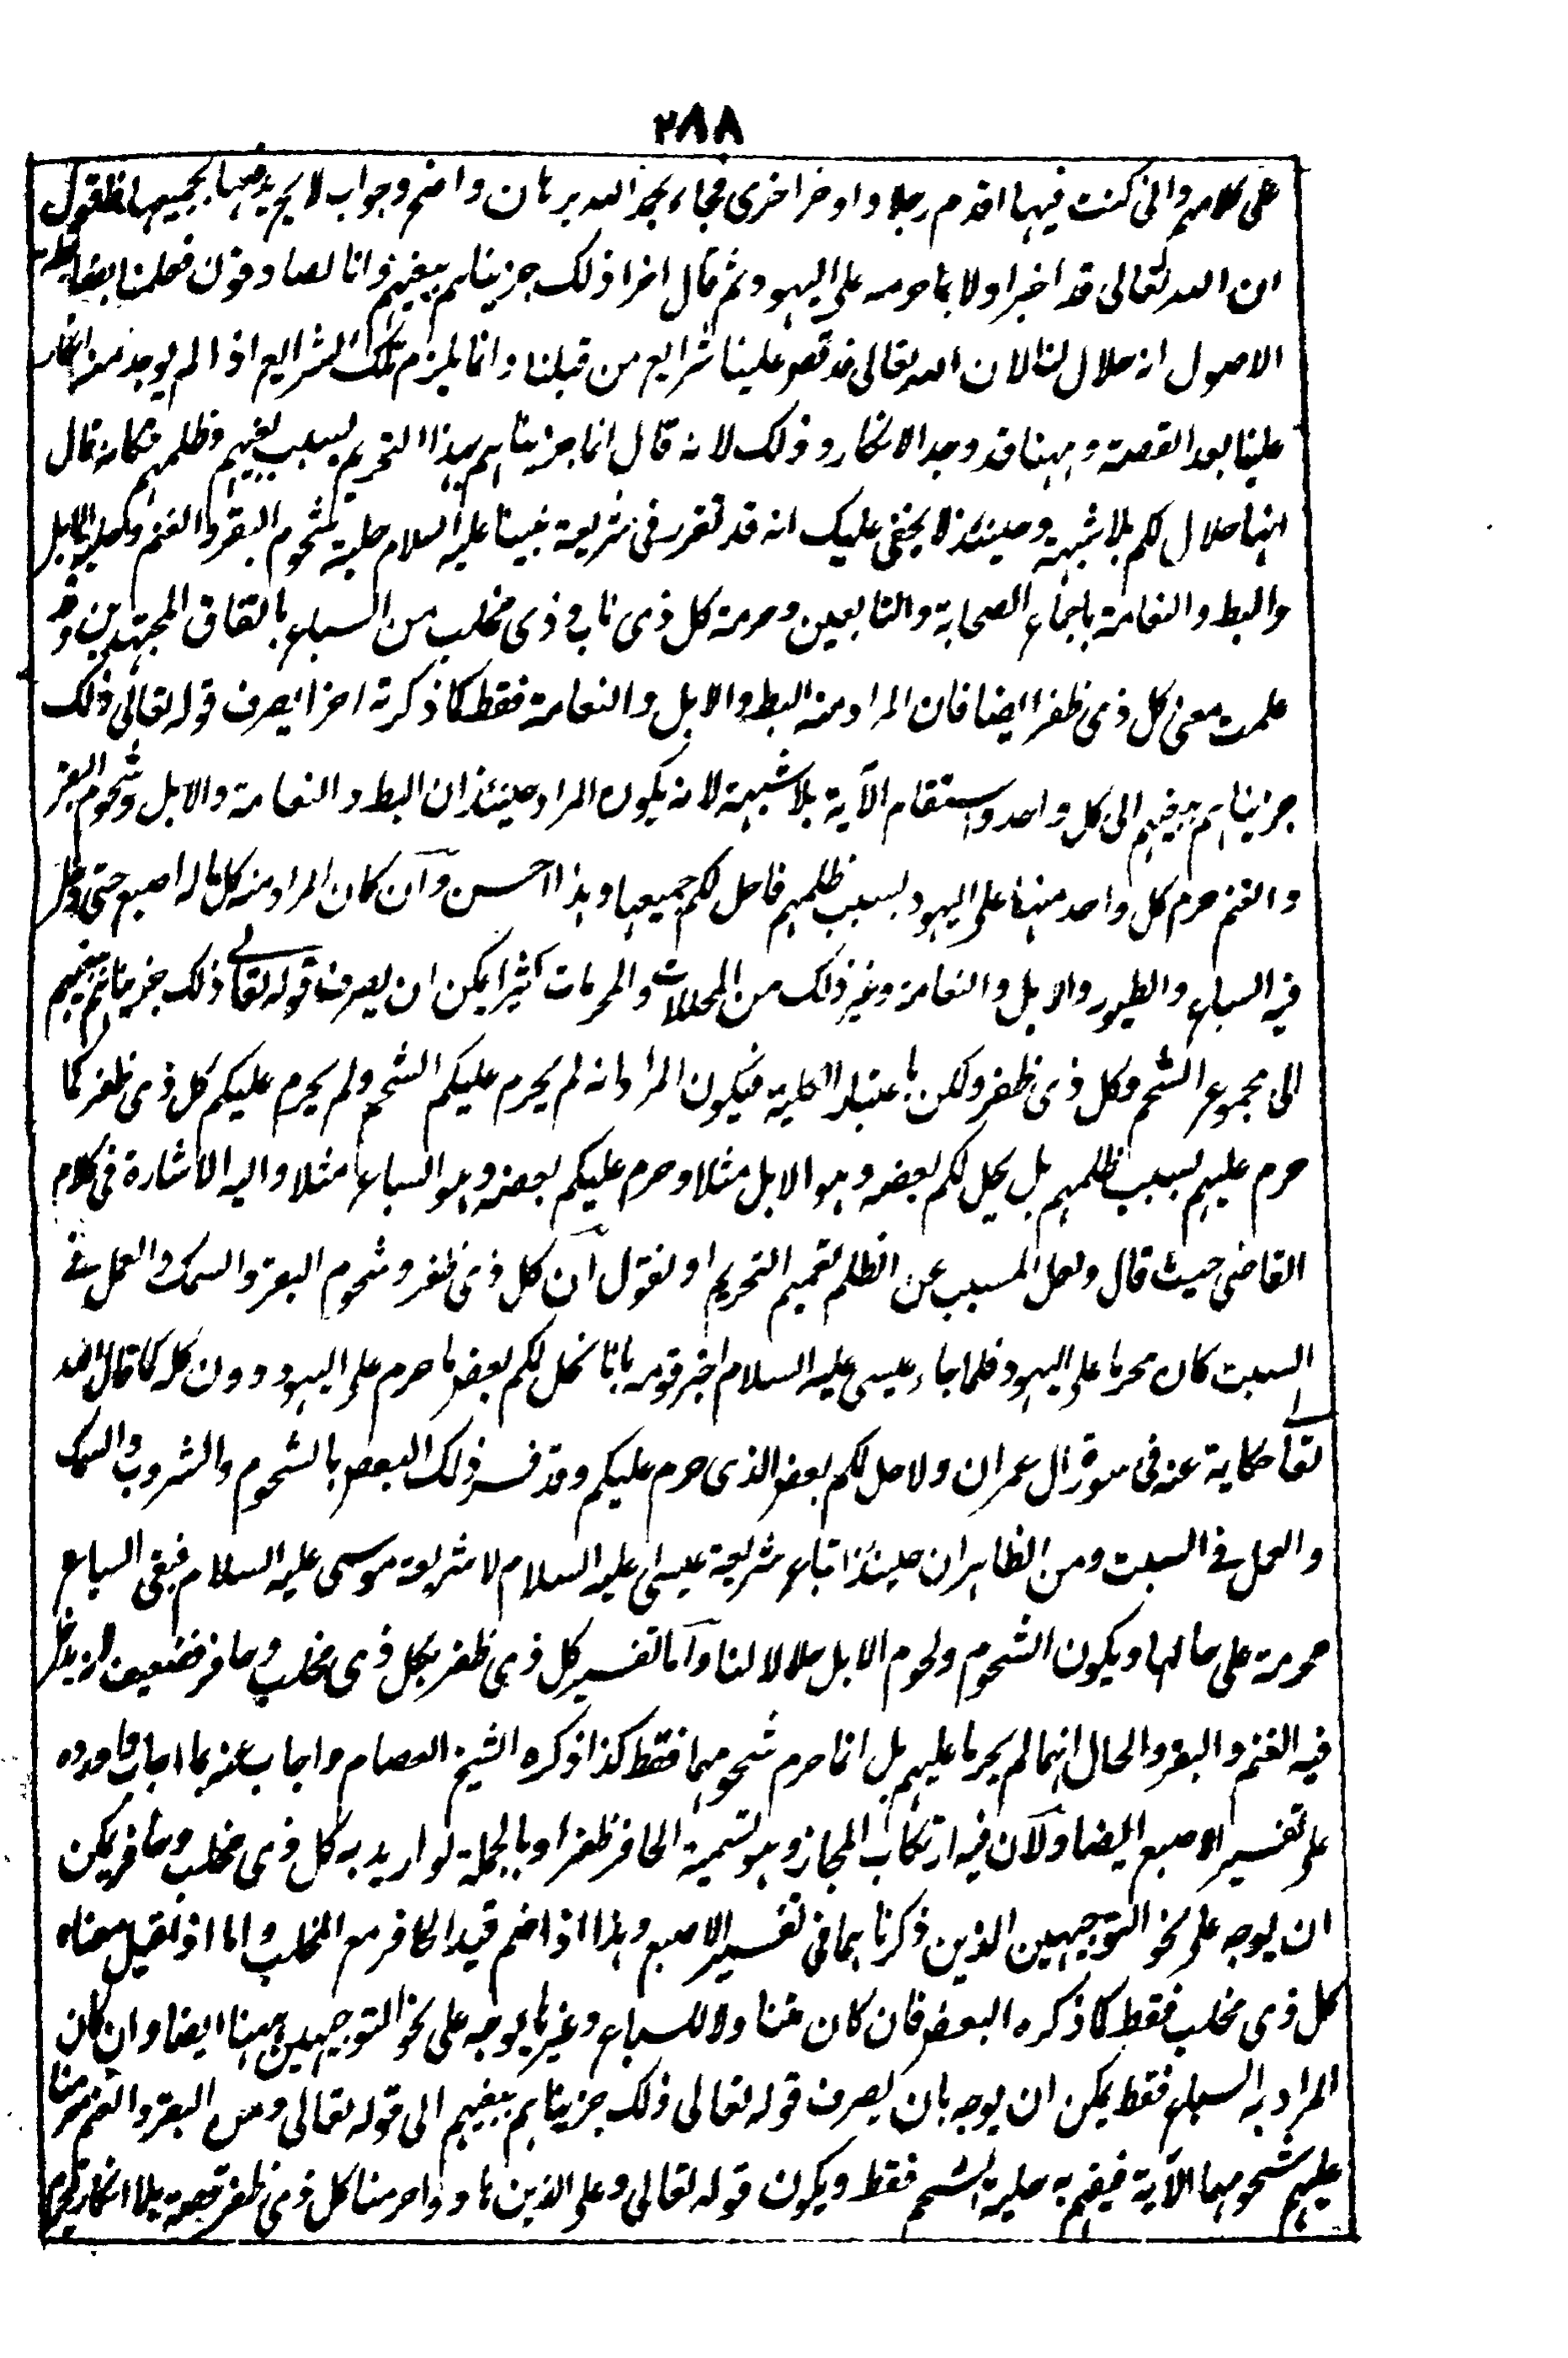 ٢٨٨
على كلامهم والى كنت فيها اقدم رجلا واوخر اخرى فجاء بحمد الله برهان واضح وجواب لا يحـ فنقول
ان الله تعالى قد اخبر اولا بما حرمه على اليهود ثم قال اخرا ذلك جزيناهم ببغيهم وانا لصادقون فعلمنا بضابطة
الاصول انه حلال لنا لان الله تعالى قد قص علينا شرايع من قبلنا وانما يلزم تلك الشرايع اذا لم يوجد منه انكار
علينا بعد القصة وههنا قد وجد الانكار وذلك لانه قال انما جزيناهم بهذا التحريم بسبب بغيهم وظلمهم فكانه قال
انها حلال لكم بلا شبهة وحينئذ لا يخفى عليك انه قد تقرر فى شريعة نبينا عليه السلام حلية شحوم البقر والغنم وحلية الابل
والبط والنعامة باجماع الصحابة والتابعين وحرمة كل ذى ناب وذى مخلب من السباع بالقاق المجتهدين وقد
علمت معنى كل ذى ظفر ايضا فان المراد منه البط والابل والنعامة فقط كما ذكرته اخرا يصرف قوله تعالى ذلك
جزيناهم ببغيهم الى كل واحد واستقام الآية بلا شبهة لانه يكون المراد حينئذ ان البط والنعامة والابل وشحوم البقر
والغنم حرم كل واحد منها على اليهود بسبب ظلمهم فاحل لكم جميعها وهذا احسن وان كان المراد منه كل ما له اصبع حتى دخل
فيه السباع والطيور والابل والنعامة وغير ذلك من المحللات والمحرمات كثيرا يمكن ان يصرف قوله تعالى ذلك جزيناهم ببغيهم
الى مجموع الشحم وكل ذى ظفر ولكن باعتبار الكلية فيكون المراد انه لم يحرم عليكم الشحم ولم يحرم عليكم كل ذى ظفر كما
حرم عليهم بسبب ظلمهم بل يحل لكم بعضه وهو الابل مثلا وحرم عليكم بعضه وهو السباع مثلا واليه الاشارة فى كلام
القاضى حيث قال ولعل المسبب عن الظلم تعميم التحريم او نقول ان كل ذى ظفر وشحوم البقر والسمك والعمل فى
السبت كان محرما على اليهود فلما جاء عيسى عليه السلام اخبر قومه بانا نحل لكم بعض ما حرم على اليهود دون كله كما قال الله
تعالى حكاية عنه فى سورة ال عمران ولاحل لكم بعض الذى حرم عليكم وقد فسر ذلك البعض بالشحوم والشروب والسمك
والعمل فى السبت ومن الظاهر ان حينئذ اتباع شريعة عيسى عليه السلام لا شريعة موسى عليه السلام فبقى السباع
محرمة على حالها ويكون الشحوم ولحوم الابل حلالا لنا واما تفسير كل ذى ظفر بكل ذى مخلب وحافر فضعيف لانه يدخل
فيه الغنم والبقر والحال انهما لم يحرما عليهم بل انما حرم شحومهما فقط كذا ذكره الشيخ العصام واجاب عنه بما اجاب واورده
على تفسير الاصبع ايضا ولان فيه ارتكاب المجاز وهو تسمية الحافر ظفرا وبالجملة لو اريد به كل ذى مخلب وحافر يمكن
ان يوجه على نحو التوجيهين الذين ذكرناهما فى تفسير الاصبع وهذا اذا ضم قيد الحافر مع المخلب واما اذا قيل معناه
كل ذى مخلب فقط كما ذكره البعض فان كان متناولا للسباع وغيرها يوجه على نحو التوجيهين ههنا ايضا وان كان
المراد به السباع فقط يمكن ان يوجه بان يصرف قوله تعالى ذلك جزيناهم ببغيهم الى قوله تعالى ومن البقر والغنم حرمنا
عليهم شحومهما الآية فيفهم به حلية الشحم فقط ويكون قوله تعالى وعلى الذين هادوا حرمنا كل ذى ظفر قصة بلا انكار